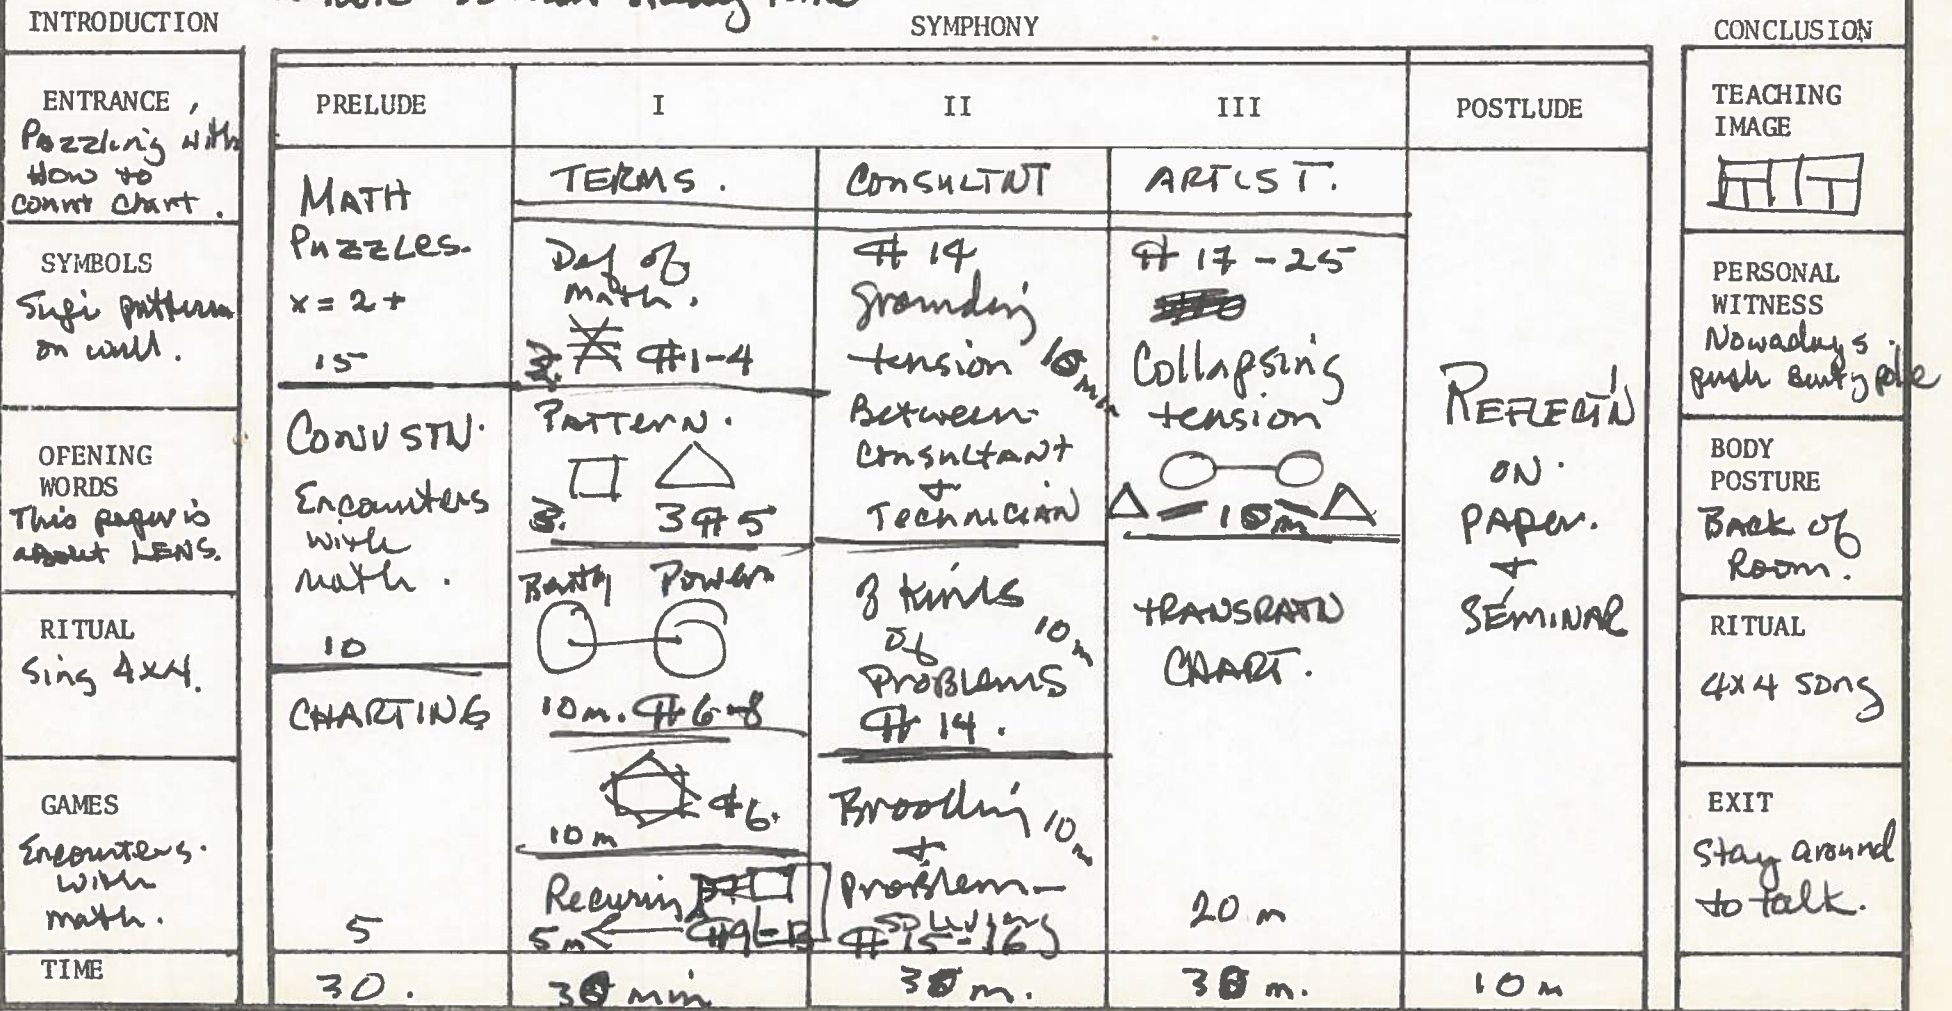 INTRODUCTION
ENTRANCE,
Puzzling with
How to
count chart.
SYMBOLS
Sufi pattern
on wall.
OPENING
WORDS
This paper is
about LENS.
RITUAL
Sing 4x4.
GAMES
Encounters
with
math.
TIME
SYMPHONY
PRELUDE
MATH
PUZZLES.
x = 2 +
15
CONVSTN.
Encounters
with
math.
10
CHARTING
5
30.
I
TERMS.
Def of
math.
#1-4
PATTERN.
3 #5
Beauty Power
10m. #6-8
#6.
10m
Recuring
5m #9-13
30 min
II
CONSULTNT
# 14
Grounding
tension
10m
Between
Consultant
+
Technician
3 Kinds
of
10m
Problems
# 14.
Brooding
10m
+
Problem-
solving
#15-16
30 m.
III
ARTIST.
# 17-25
Collapsing
tension
10m
TRANSPRATN
CHART.
20 m
30 m.
POSTLUDE
REFLECT'N
ON
PAPER.
+
SEMINAR
10 m
CONCLUSION
TEACHING
IMAGE
PERSONAL
WITNESS
Nowadays
push Beauty pole
BODY
POSTURE
Back of
Room.
RITUAL
4x4 song
EXIT
Stay around
to talk.